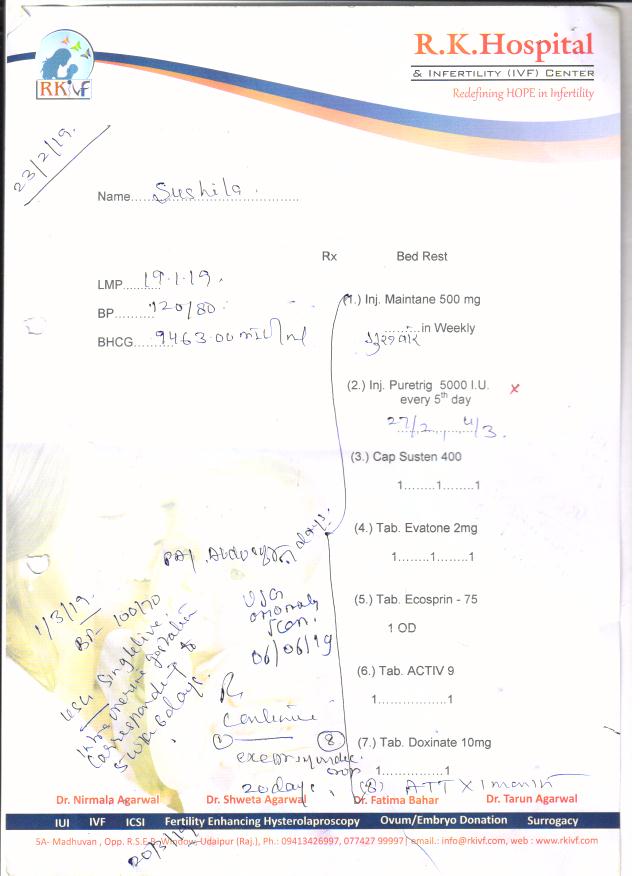 RKIVF
R.K.Hospital
& INFERTILITY (IVF) CENTER
Redefining HOPE in Infertility
23/2/19.
Name Sushila.
Rx Bed Rest
LMP 19.1.19.
BP 120/80.
BHCG 9463.00 mIU/ml
(1.) Inj. Maintane 500 mg
गुरुवार in Weekly
(2.) Inj. Puretrig 5000 I.U. x
every 5th day
27/2, 4/3.
(3.) Cap Susten 400
1........1........1
(4.) Tab. Evatone 2mg
1........1........1
(5.) Tab. Ecosprin - 75
1 OD
(6.) Tab. ACTIV 9
1................1
(7.) Tab. Doxinate 10mg
1...............1
(8) ATT X 1 month
days.
1/3/19.
BP- 100/70
USG Single live
intrauterine gestation
corresponding to
5 wk 6 days.
USG
anomaly
scan.
06/06/19
Rx
continue
(1) — (8)
except
20 days.
20/3/19
Dr. Nirmala Agarwal Dr. Shweta Agarwal Dr. Fatima Bahar Dr. Tarun Agarwal
IUI IVF ICSI Fertility Enhancing Hysterolaproscopy Ovum/Embryo Donation Surrogacy
5A- Madhuvan , Opp. R.S.E.B. Window, Udaipur (Raj.), Ph.: 09413426997, 077427 99997| email.: info@rkivf.com, web : www.rkivf.com